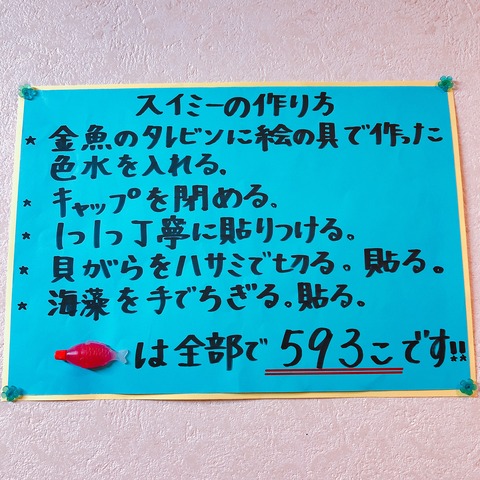 スイミーの作り方
* 金魚のタレビンに絵の具で作った
色水を入れる。
* キャップを閉める。
* 1つ1つ丁寧に貼りつける。
* 貝がらをハサミで切る。貼る。
* 海藻を手でちぎる。貼る。
は全部で593こです!!